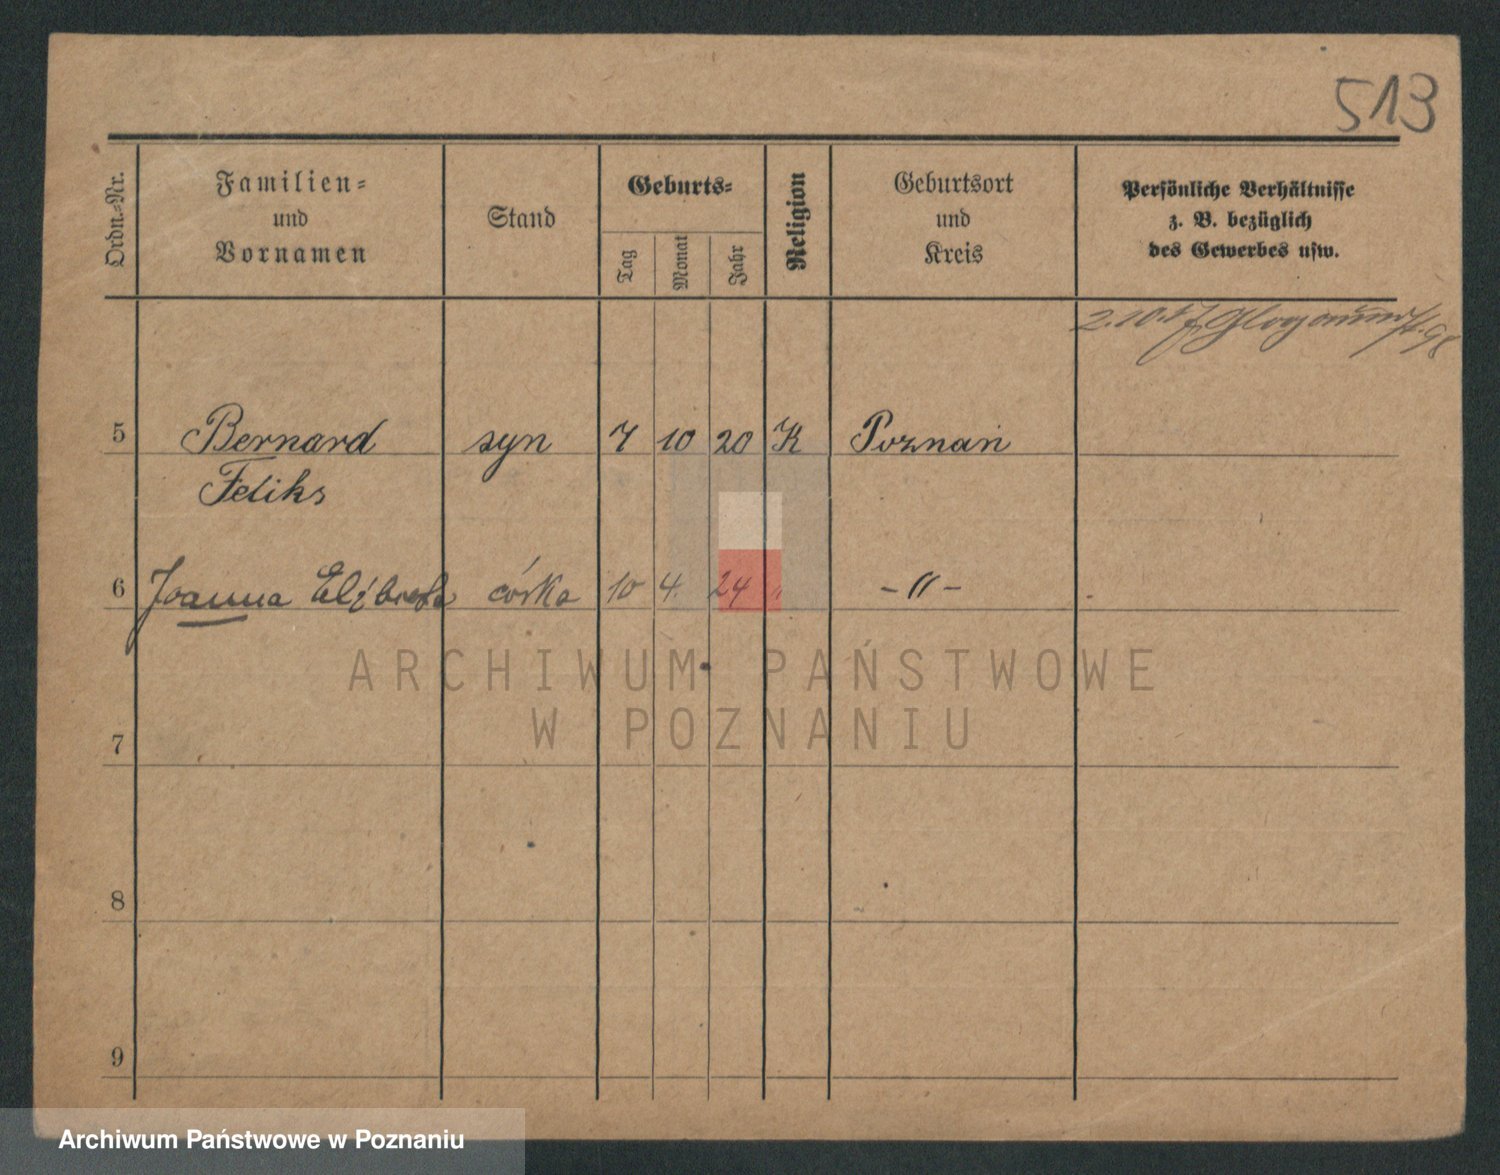 513
Ordn.-Nr.
Familien-
und
Vornamen
Stand
Geburts-
Tag
Monat
Jahr
Religion
Geburtsort
und
Kreis
Persönliche Verhältnisse
z. B. bezüglich
des Gewerbes usw.
5 Bernard syn 7 10 20 K Poznań
Feliks
6 Joanna Elżbieta córka 10 4. 24 " -"-
ARCHIWUM PAŃSTWOWE
W POZNANIU
7
8
9
Archiwum Państwowe w Poznaniu